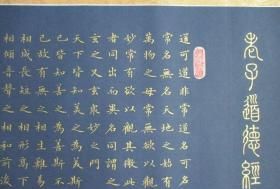 老子道德經
道可道非常道名可名
常名無名天地之始有
萬物之母常無欲以觀
妙常有欲以觀其徼此
者同出而異名同謂之
玄之又玄眾妙之門
天下皆知美之為美斯
已皆知善之為善斯不
已故有無之相生難易
相成長短之相形高下
相傾音聲之相和前後